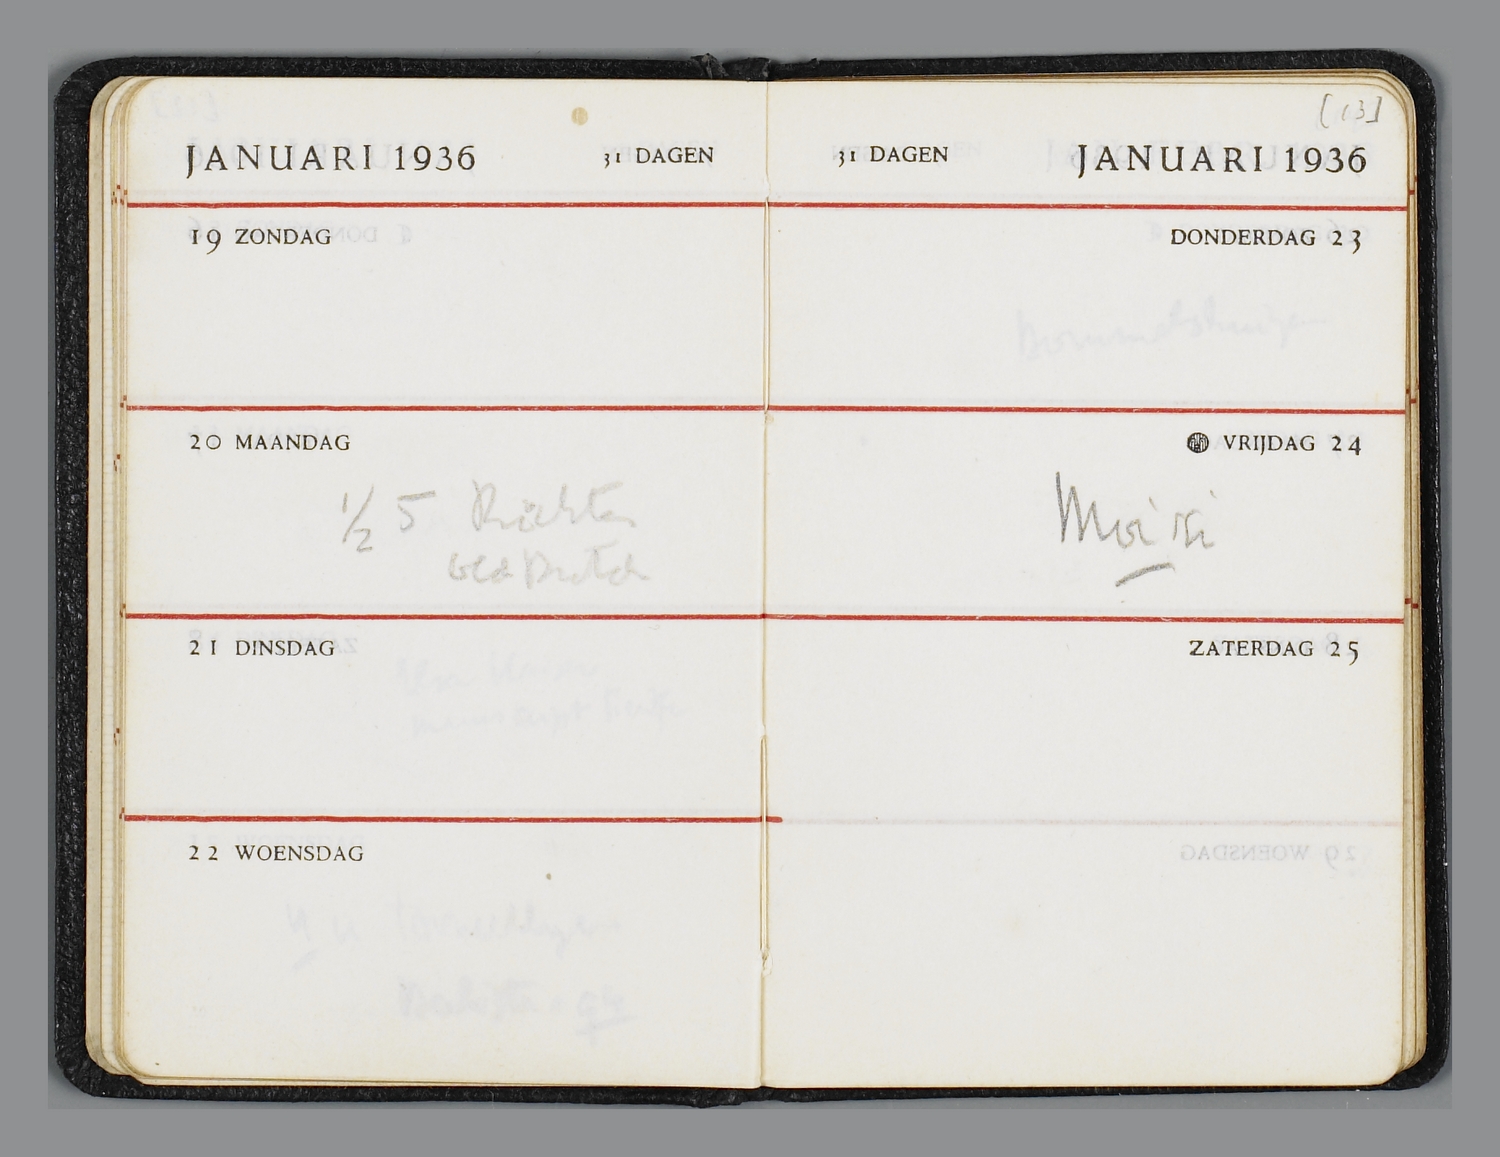 JANUARI 1936 31 DAGEN
19 ZONDAG
20 MAANDAG
½ 5 Richter
21 DINSDAG
22 WOENSDAG
[13]
31 DAGEN JANUARI 1936
DONDERDAG 23
VRIJDAG 24
ZATERDAG 25